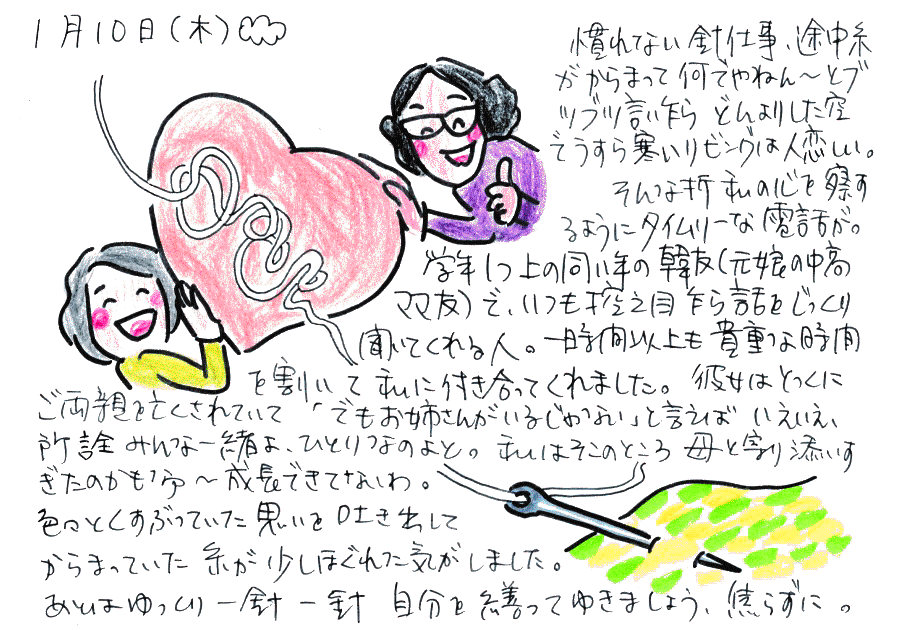 1月10日(木)
慣れてない針仕事、途中糸
がからまって何でやねん〜とブ
ツブツ言い乍らどんよりした空
でうすら寒いリビングは人恋しい。
そんな折私の心を察す
るようにタイムリーな電話が。
学年1つ上の同い年の韓友(元娘の中高
ママ友)で、いつも控え目乍ら話をじっくり
聞いてくれる人。一時間以上も貴重な時間
を割いて私に付き合ってくれました。彼女はとっくに
ご両親を亡くされていて「でもお姉さんがいるじゃない」と言えばいえいえ、
所詮みんな一緒よ、ひとりなのよと。私はそこのところ母と寄り添いす
ぎたのかもね〜成長できてないわ。
色々とくすぶっていた思いを吐き出して
からまっていた糸が少しほぐれた気がしました。
あとはゆっくり一針一針 自分を繕ってゆきましょう、焦らずに。